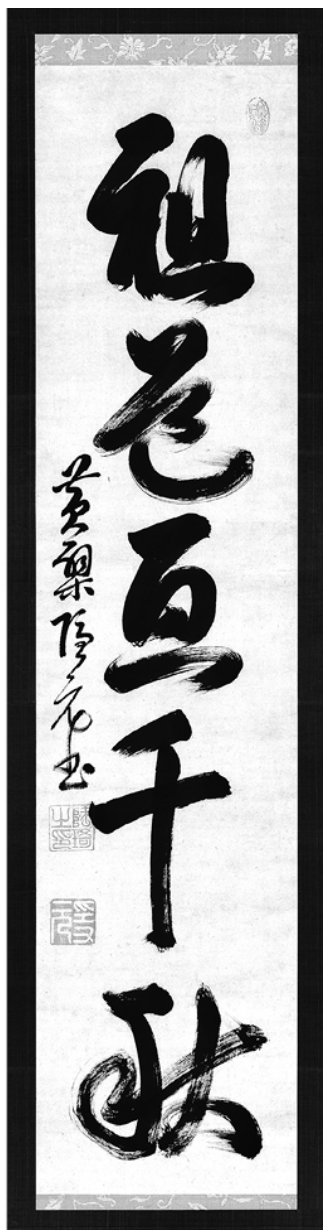 祖道亘千秋
黄檗隠元書